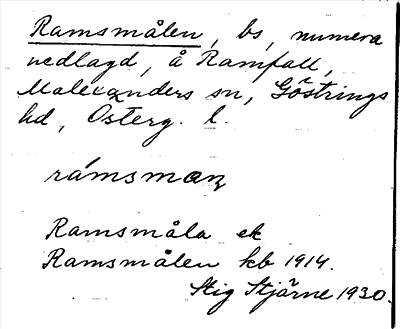 Ramsmålen, bs, numera
nedlagd, å Ramfall,
Malexanders sn, Göstrings
hd, Österg. l.
ràmsmaṇ
Ramsmåla ek
Ramsmålen kb 1914.
Stig Stjärne 1930.